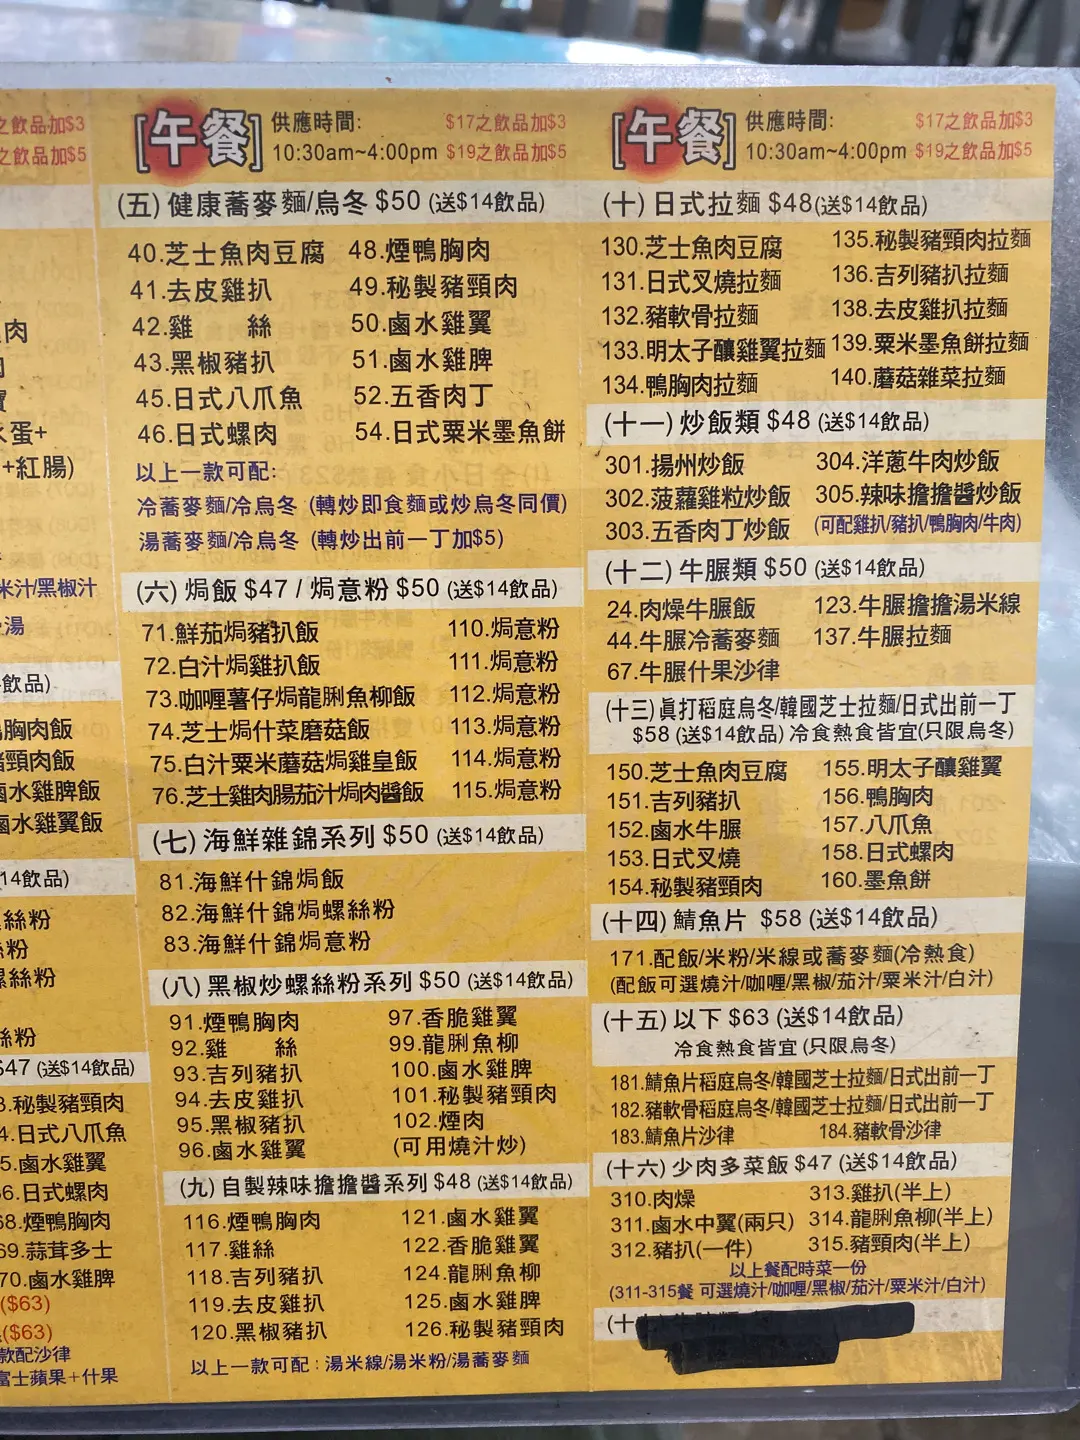 之飲品加$3
之飲品加$5
肉
蛋+
+紅腸)
米汁/黑椒汁
湯
飲品)
鴨胸肉飯
豬頸肉飯
鹵水雞脾飯
鹵水雞翼飯
14飲品)
絲粉
粉
螺絲粉
絲粉
$47 (送$14飲品)
3.秘製豬頸肉
4.日式八爪魚
5.鹵水雞翼
66.日式螺肉
68.煙鴨胸肉
69.蒜茸多士
70.鹵水雞脾
($63)
($63)
款配沙律
富士蘋果+什果
[午餐] 供應時間:
10:30am~4:00pm
$17之飲品加$3
$19之飲品加$5
(五) 健康蕎麥麵/烏冬 $50 (送$14飲品)
40.芝士魚肉豆腐
41.去皮雞扒
42.雞 絲
43.黑椒豬扒
45.日式八爪魚
46.日式螺肉
48.煙鴨胸肉
49.秘製豬頸肉
50.鹵水雞翼
51.鹵水雞脾
52.五香肉丁
54.日式粟米墨魚餅
以上一款可配:
冷蕎麥麵/冷烏冬 (轉炒即食麵或炒烏冬同價)
湯蕎麥麵/冷烏冬 (轉炒出前一丁加$5)
(六) 焗飯 $47 / 焗意粉 $50 (送$14飲品)
71.鮮茄焗豬扒飯
72.白汁焗雞扒飯
73.咖喱薯仔焗龍脷魚柳飯
74.芝士焗什菜蘑菇飯
75.白汁粟米蘑菇焗雞皇飯
76.芝士雞肉腸茄汁焗肉醬飯
110.焗意粉
111.焗意粉
112.焗意粉
113.焗意粉
114.焗意粉
115.焗意粉
(七) 海鮮雜錦系列 $50 (送$14飲品)
81.海鮮什錦焗飯
82.海鮮什錦焗螺絲粉
83.海鮮什錦焗意粉
(八) 黑椒炒螺絲粉系列 $50 (送$14飲品)
91.煙鴨胸肉
92.雞 絲
93.吉列豬扒
94.去皮雞扒
95.黑椒豬扒
96.鹵水雞翼
97.香脆雞翼
99.龍脷魚柳
100.鹵水雞脾
101.秘製豬頸肉
102.煙肉
(可用燒汁炒)
(九) 自製辣味擔擔醬系列 $48 (送$14飲品)
116.煙鴨胸肉
117.雞絲
118.吉列豬扒
119.去皮雞扒
120.黑椒豬扒
121.鹵水雞翼
122.香脆雞翼
124.龍脷魚柳
125.鹵水雞脾
126.秘製豬頸肉
以上一款可配：湯米線/湯米粉/湯蕎麥麵
[午餐] 供應時間:
10:30am~4:00pm
$17之飲品加$3
$19之飲品加$5
(十) 日式拉麵 $48(送$14飲品)
130.芝士魚肉豆腐
131.日式叉燒拉麵
132.豬軟骨拉麵
133.明太子釀雞翼拉麵
134.鴨胸肉拉麵
135.秘製豬頸肉拉麵
136.吉列豬扒拉麵
138.去皮雞扒拉麵
139.粟米墨魚餅拉麵
140.蘑菇雜菜拉麵
(十一) 炒飯類 $48 (送$14飲品)
301.揚州炒飯
302.菠蘿雞粒炒飯
303.五香肉丁炒飯
304.洋蔥牛肉炒飯
305.辣味擔擔醬炒飯
(可配雞扒/豬扒/鴨胸肉/牛肉)
(十二) 牛𦟌類 $50 (送$14飲品)
24.肉燥牛𦟌飯
44.牛𦟌冷蕎麥麵
67.牛𦟌什果沙律
123.牛𦟌擔擔湯米線
137.牛𦟌拉麵
(十三) 眞打稻庭烏冬/韓國芝士拉麵/日式出前一丁
$58 (送$14飲品) 冷食熱食皆宜(只限烏冬)
150.芝士魚肉豆腐
151.吉列豬扒
152.鹵水牛𦟌
153.日式叉燒
154.秘製豬頸肉
155.明太子釀雞翼
156.鴨胸肉
157.八爪魚
158.日式螺肉
160.墨魚餅
(十四) 鯖魚片 $58 (送$14飲品)
171.配飯/米粉/米線或蕎麥麵(冷熱食)
(配飯可選燒汁/咖喱/黑椒/茄汁/粟米汁/白汁)
(十五) 以下 $63 (送$14飲品)
冷食熱食皆宜 (只限烏冬)
181.鯖魚片稻庭烏冬/韓國芝士拉麵/日式出前一丁
182.豬軟骨稻庭烏冬/韓國芝士拉麵/日式出前一丁
183.鯖魚片沙律
184.豬軟骨沙律
(十六) 少肉多菜飯 $47 (送$14飲品)
310.肉燥
311.鹵水中翼(兩只)
312.豬扒(一件)
313.雞扒(半上)
314.龍脷魚柳(半上)
315.豬頸肉(半上)
以上餐配時菜一份
(311-315餐 可選燒汁/咖喱/黑椒/茄汁/粟米汁/白汁)
(十